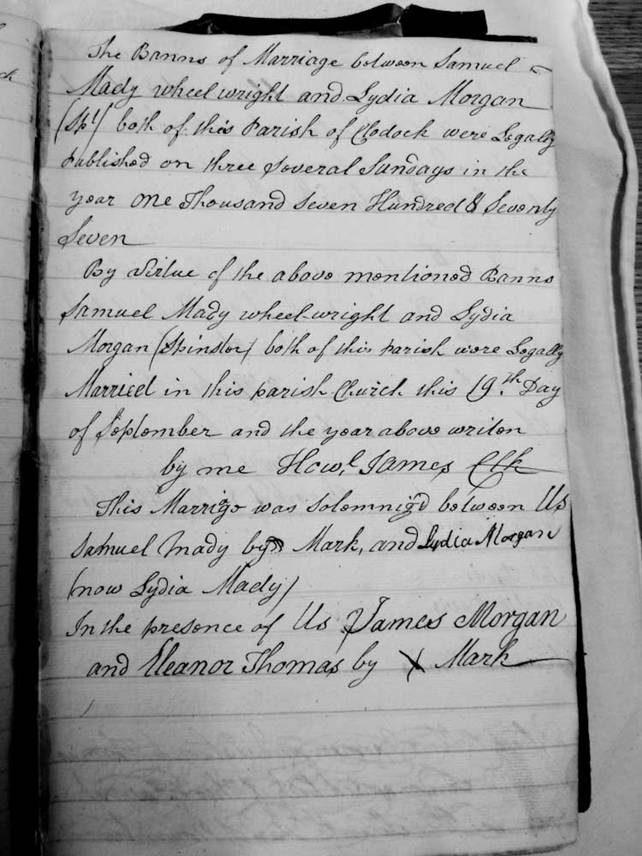 The Banns of Marriage between Samuel
Mady wheelwright and Lydia Morgan
(Spr) both of this Parish of Clodock were Legally
Published on three Several Sundays in the
year one Thousand Seven Hundred & Seventy
Seven
By Virtue of the above mentioned Banns
Samuel Mady wheelwright and Lydia
Morgan (Spinster) both of this parish were Legally
Married in this parish Church this 19th Day
of September and the year above writen
by me Howl James Clk
This Marrige was Solemniz'd between Us
Samuel Mady by Mark, and Lydia Morgan
(now Lydia Mady)
In the presence of Us James Morgan
and Eleanor Thomas by X Mark